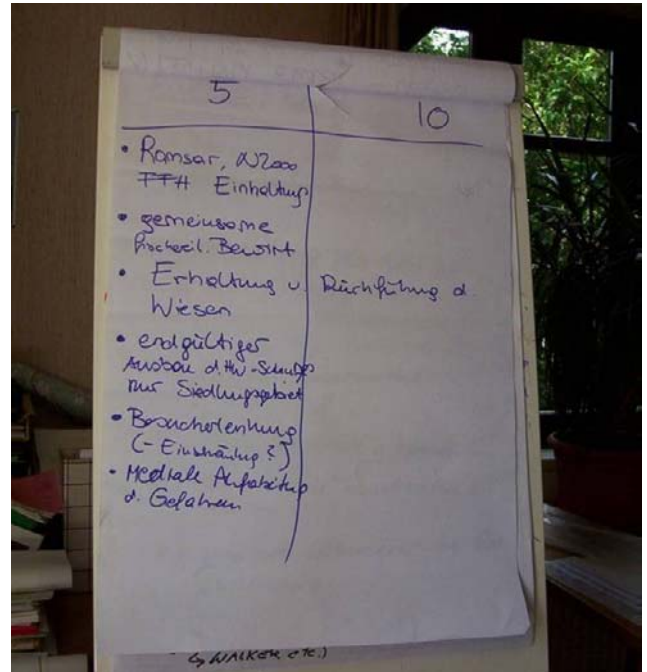 5
10
• Ramsar, N2000
FFH Einhaltung
• gemeinsame
fischereil. Bewirt
• Erhaltung u. Durchführung d.
Wiesen
• endgültiger
Ausbau d. HW-Schutzes
nur Siedlungsgebiet
• Besucherlenkung
(- Einschränkung?)
• Mediale Aufarbeitung
d. Gefahren
↳ WALKER etc.)